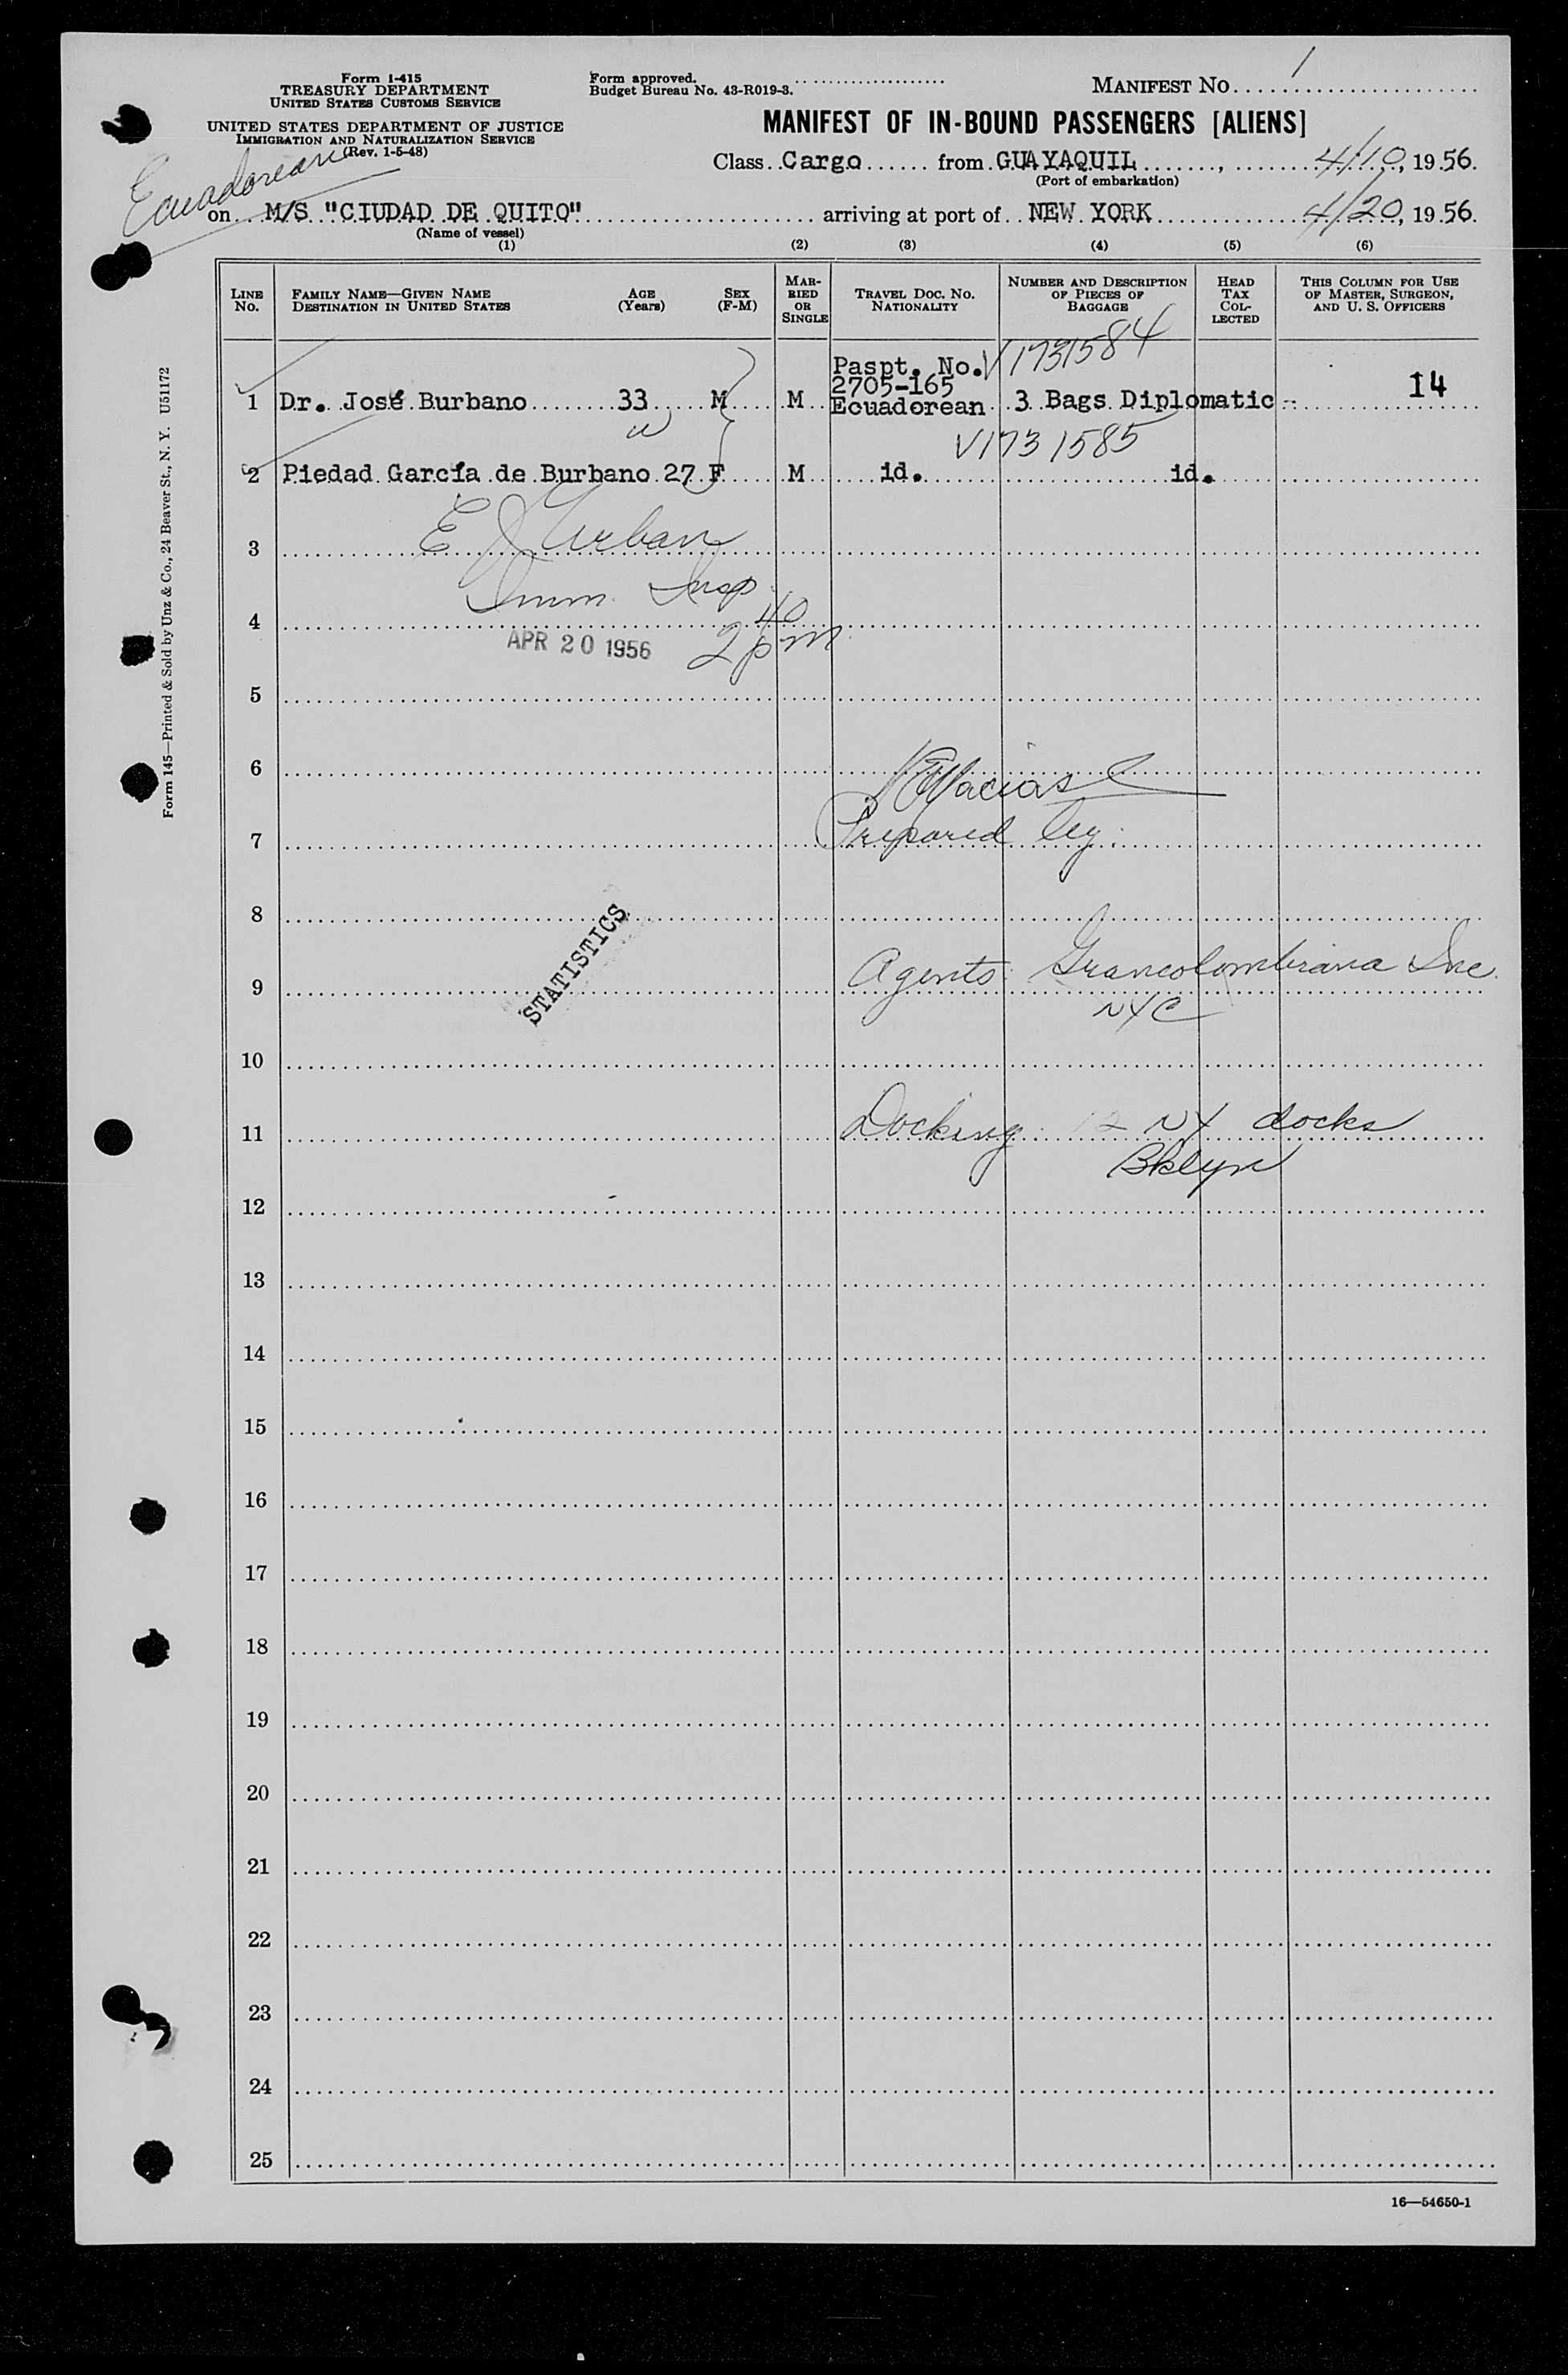 Form I-415
TREASURY DEPARTMENT
UNITED STATES CUSTOMS SERVICE
UNITED STATES DEPARTMENT OF JUSTICE
IMMIGRATION AND NATURALIZATION SERVICE
(Rev. 1-5-48)
Ecuadorean
Form approved.
Budget Bureau No. 43-R019-3.
MANIFEST NO. 1
MANIFEST OF IN-BOUND PASSENGERS [ALIENS]
Class Cargo from GUAYAQUIL, 4/10, 1956.
(Port of embarkation)
on M/S "CIUDAD DE QUITO" arriving at port of NEW YORK 4/20, 1956.
(Name of vessel)
(1) (2) (3) (4) (5) (6)
LINE NO.
FAMILY NAME—GIVEN NAME
DESTINATION IN UNITED STATES
AGE (Years)
SEX (F-M)
MARRIED OR SINGLE
TRAVEL DOC. NO.
NATIONALITY
NUMBER AND DESCRIPTION OF PIECES OF BAGGAGE
HEAD TAX COLLECTED
THIS COLUMN FOR USE OF MASTER, SURGEON, AND U. S. OFFICERS
Paspt. No. V1731584
2705-165
1 Dr. José Burbano 33 M M Ecuadorean 3 Bags Diplomatic - 14
V1731585
2 Piedad García de Burbano 27 F M id. id.
3 E J Urban
Imm. Insp
4
APR 20 1956 2 40 pm
5
6 Macias
7 Prepared by:
8
STATISTICS
9 Agents: Grancolombiana Inc.
NYC
10
11 Docking: 12 NY docks
Bklyn
12
13
14
15
16
17
18
19
20
21
22
23
24
25
16—54650-1
Form 145—Printed & Sold by Unz & Co., 24 Beaver St., N. Y. U51172